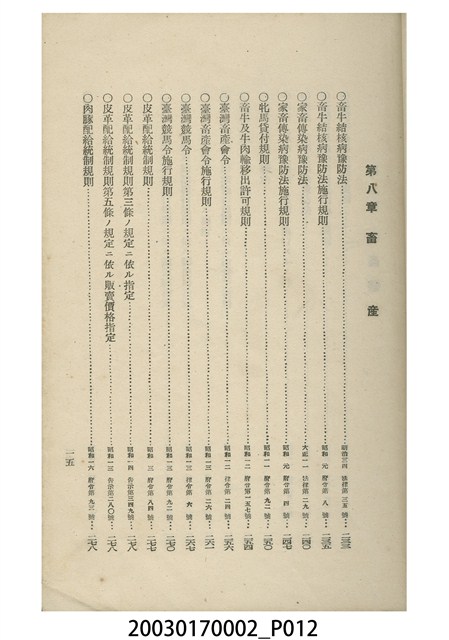 第八章 畜產
○畜牛結核病豫防法……明治三四 法律第三五號…二三三
○畜牛結核病豫防法施行規則……昭和元 府令第八號…二三五
○家畜傳染病豫防法……大正一一 法律第二九號…二四〇
○家畜傳染病豫防法施行規則……昭和元 府令第四號…二四七
○牝馬貸付規則……昭和一一 府令第九二號…二五〇
○畜牛及牛肉輸移出許可規則……昭和一二 府令第一五七號…二五四
○臺灣畜產會令……昭和一三 律令第二四號…二五六
○臺灣畜產會令施行規則……昭和一三 府令第二六號…二六一
○臺灣競馬令……昭和一三 律令第六號…二六七
○臺灣競馬令施行規則……昭和一三 府令第九二號…二七〇
○皮革配給統制規則……昭和一三 府令第八四號…二七七
○皮革配給統制規則第三條ノ規定ニ依ル指定……昭和一四 告示第三四九號…二七八
○皮革配給統制規則第五條ノ規定ニ依ル販賣價格指定……昭和一三 告示第二八〇號…二七八
○肉豚配給統制規則……昭和一六 府令第九三號…二七八
一五
20030170002_P012